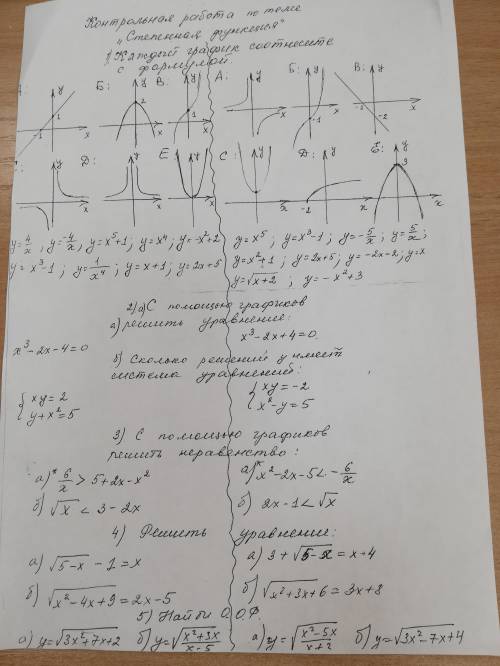 Контрольная работа по теме
„Степенная функция"
1) Каждый график соотнесите
с формулой.
А: Б: В: А: Б: В:
y y y y y y
2 1 -1 -1 -2
-1 x x x x x x
С: Д: Е: С: Д: Е:
y y y y y y
3
x x x x -2 x x
y=4/x; y=-4/x, y=x⁵+1; y=x⁴; y=-x²+2
y=x³-1; y=1/x⁴; y=x+1; y=2x+5
y=x⁵; y=x³-1; y=-5/x; y=5/x;
y=x²+1; y=2x+5; y=-2x-2; y=x
y=√x+2; y=-x²+3
2) а) С помощью графиков
а) решить уравнение:
x³-2x-4=0
x³-2x+4=0.
б) Сколько решений имеет
система уравнений:
{xy=2
y+x²=5
{xy=-2
x²-y=5
3) С помощью графиков
решить неравенство:
а)* 6/x > 5+2x-x²
б) √x < 3-2x
а)* x²-2x-5 < -6/x
б) 2x-1 < √x
4) Решить уравнение:
а) √5-x - 1 = x
б) √x²-4x+9 = 2x-5
а) 3+√5-x = x+4
б) √x²+3x+6 = 3x+8
5) Найти О.О.Ф.
а) y=√3x²+7x+2 б) y=√x²+3x/x-5
а) y=√x²-5x/x+2 б) y=√3x²-7x+4